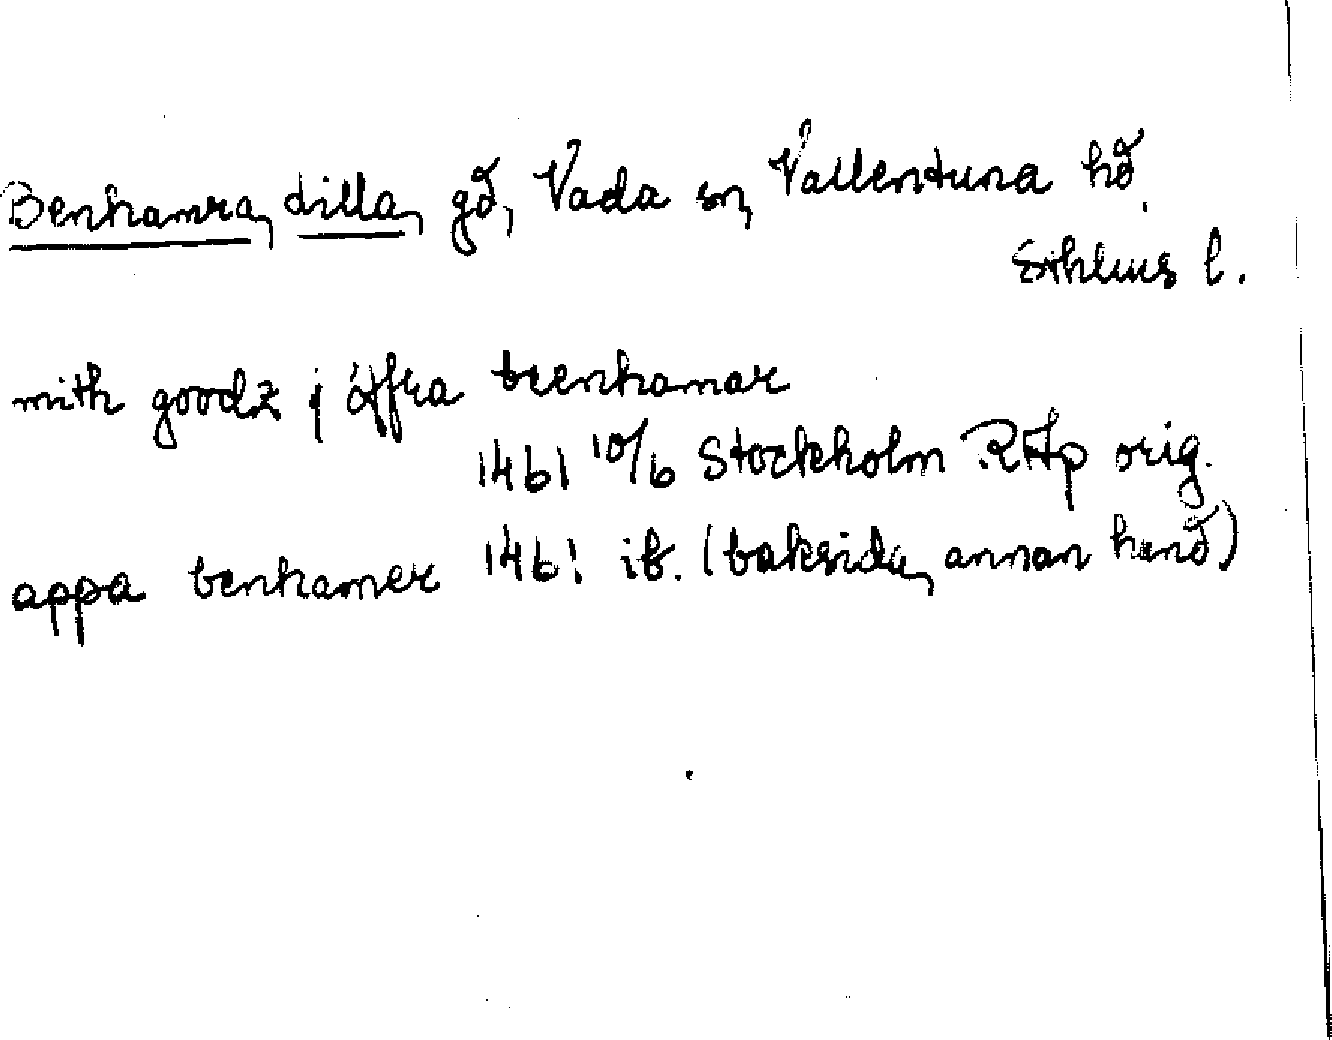 Benhamra, Lilla, gd, Vada sn, Vallentuna hd.
Sthlms l.
mith goodz j öffra beenhamar
1461 10/6 Stockholm RAp orig.
appa benhamer 1461 ib. (baksida, annan hand)